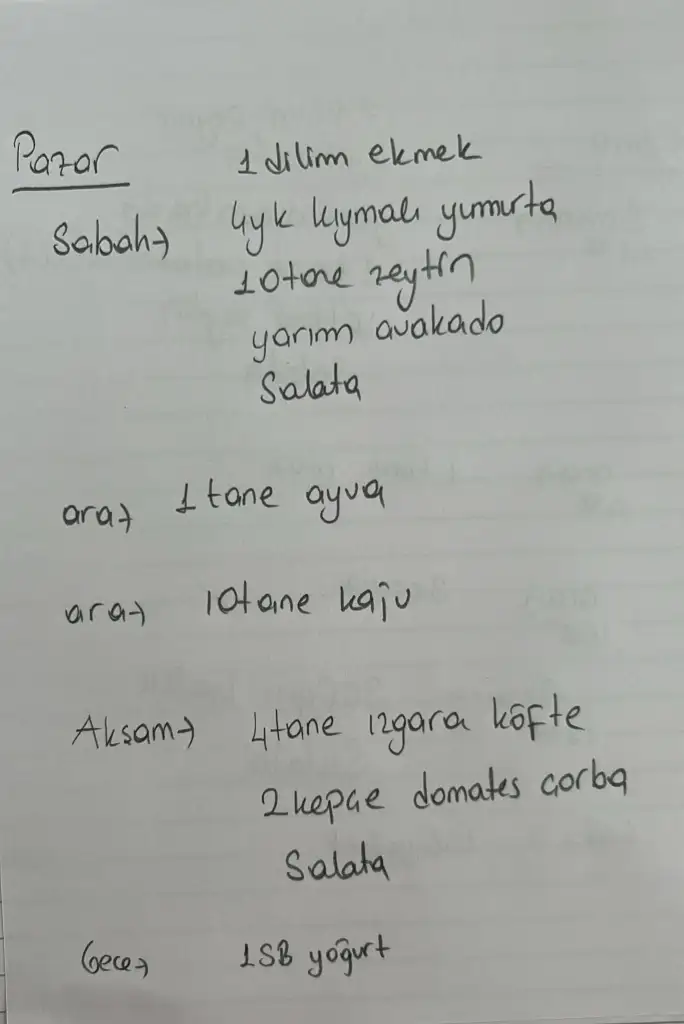 Pazar
1 dilim ekmek
Sabah→ 4yk kıymalı yumurta
10 tane zeytin
yarım avakado
Salata
ara→ 1 tane ayva
ara→ 10 tane kaju
Akşam→ 4 tane ızgara köfte
2 kepçe domates çorba
Salata
Gece→ 1SB yoğurt